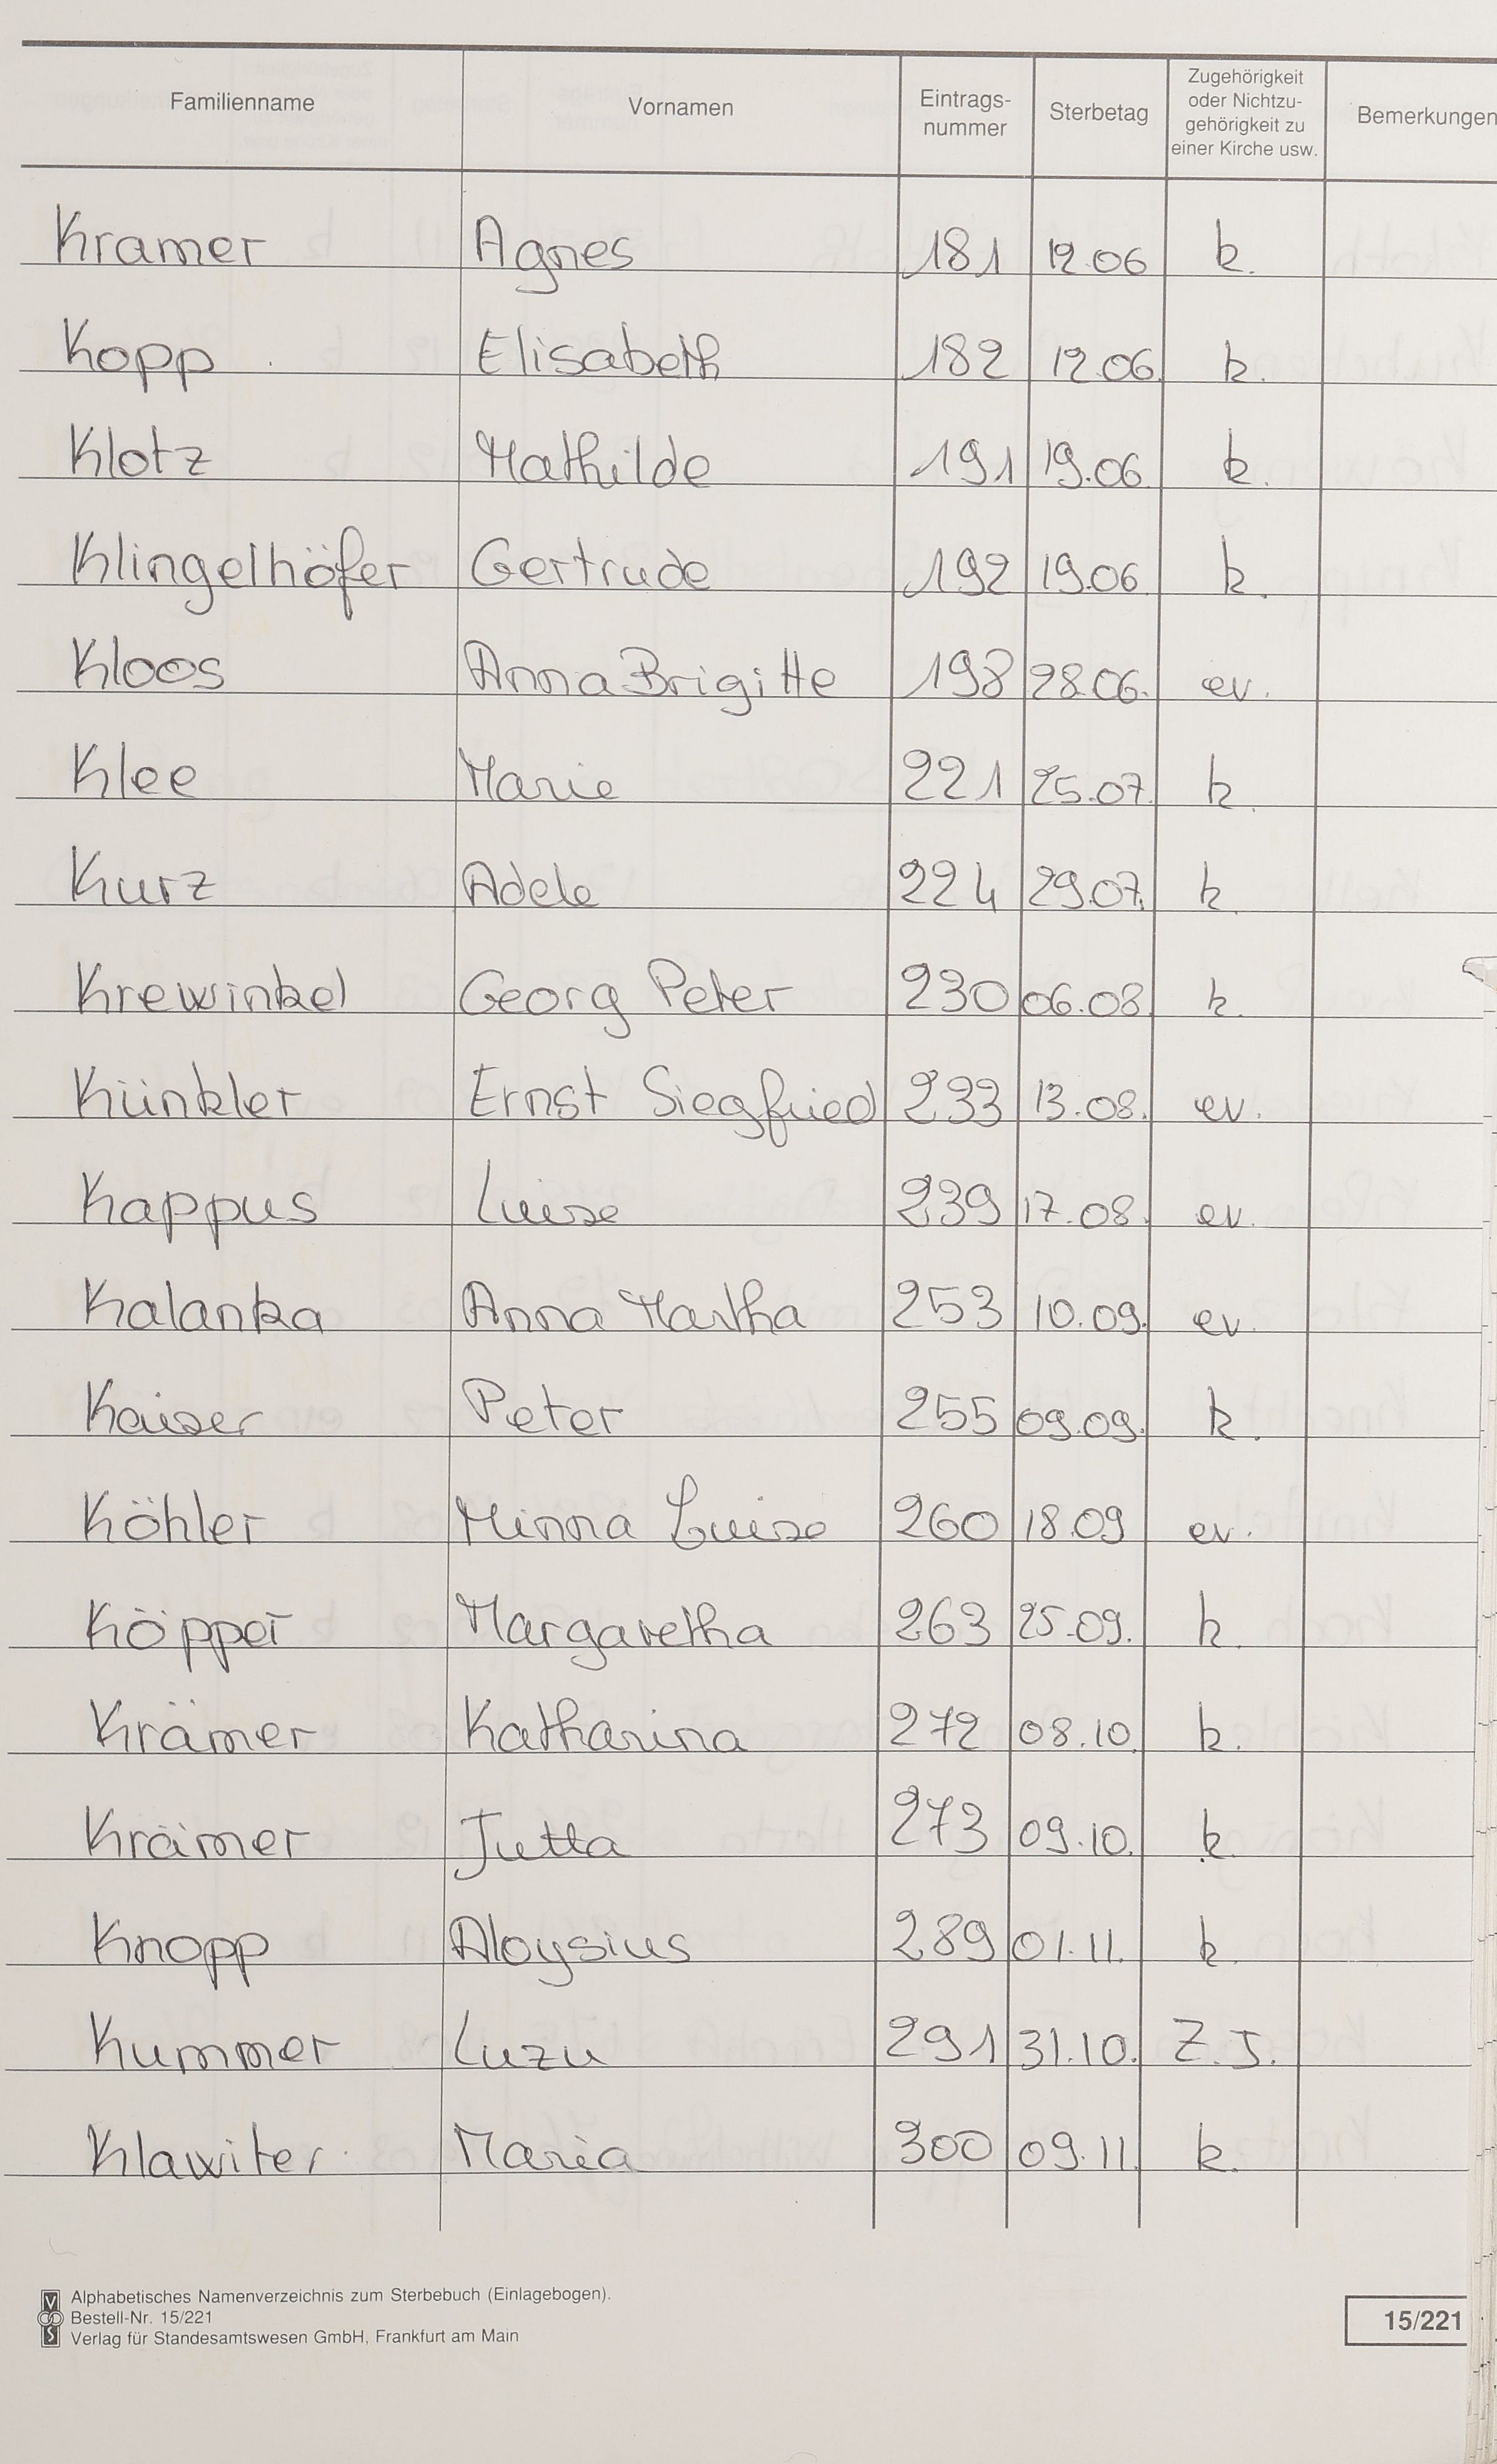 Familienname Vornamen Eintrags-nummer Sterbetag Zugehörigkeit oder Nichtzu-gehörigkeit zu einer Kirche usw. Bemerkungen
Kramer Agnes 181 12.06 k.
Kopp Elisabeth 182 12.06. k.
Klotz Mathilde 191 19.06. k.
Klingelhöfer Gertrude 192 19.06 k.
Kloos Anna Brigitte 198 28.06. ev.
Klee Marie 221 25.07. k.
Kurz Adele 224 29.07. k.
Krewinkel Georg Peter 230 06.08. k.
Künkler Ernst Siegfried 233 13.08. ev.
Kappus Luise 239 17.08. ev.
Kalanka Anna Martha 253 10.09. ev.
Kaiser Peter 255 09.09. k.
Köhler Minna Luise 260 18.09 ev.
Köpper Margaretha 263 25.09. k.
Krämer Katharina 272 08.10. k.
Krämer Jutta 273 09.10. k.
Knopp Aloysius 289 01.11. k.
Kummer Luzu 291 31.10. Z.J.
Klawiter Maria 300 09.11. k.
Alphabetisches Namenverzeichnis zum Sterbebuch (Einlagebogen).
Bestell-Nr. 15/221
Verlag für Standesamtswesen GmbH, Frankfurt am Main
15/221